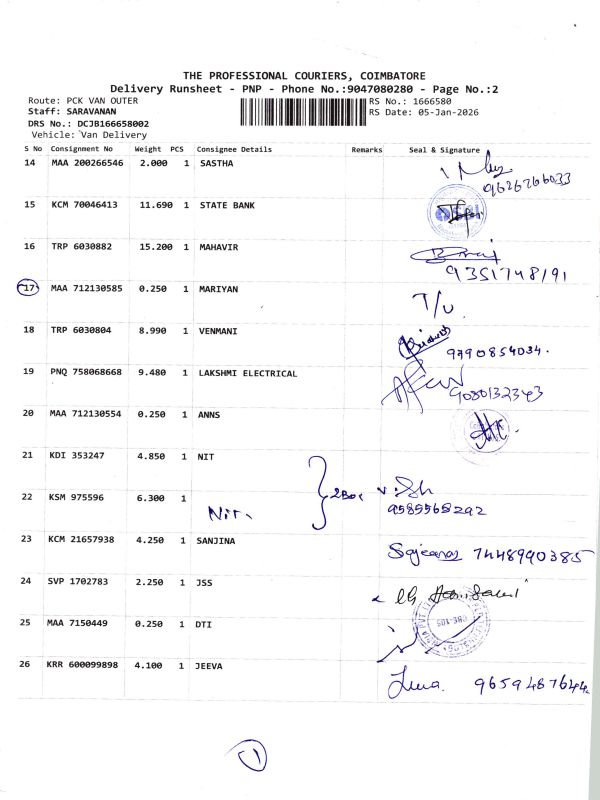 THE PROFESSIONAL COURIERS, COIMBATORE
Delivery Runsheet - PNP - Phone No.:9047080280 - Page No.:2
Route: PCK VAN OUTER RS No.: 1666580
Staff: SARAVANAN RS Date: 05-Jan-2026
DRS No.: DCJB166658002
Vehicle: Van Delivery
S No Consignment No Weight PCS Consignee Details Remarks Seal & Signature
14 MAA 200266546 2.000 1 SASTHA
9626766033
15 KCM 70046413 11.690 1 STATE BANK
16 TRP 6030882 15.200 1 MAHAVIR
9351748191
17 MAA 712130585 0.250 1 MARIYAN
T/U
18 TRP 6030804 8.990 1 VENMANI
9790854034.
19 PNQ 758068668 9.480 1 LAKSHMI ELECTRICAL
9080132343
20 MAA 712130554 0.250 1 ANNS
21 KDI 353247 4.850 1 NIT
2Box
22 KSM 975596 6.300 1 Nit.
9585565292
23 KCM 21657938 4.250 1 SANJINA
7448990385
24 SVP 1702783 2.250 1 JSS
25 MAA 7150449 0.250 1 DTI
26 KRR 600099898 4.100 1 JEEVA
9659487644
1